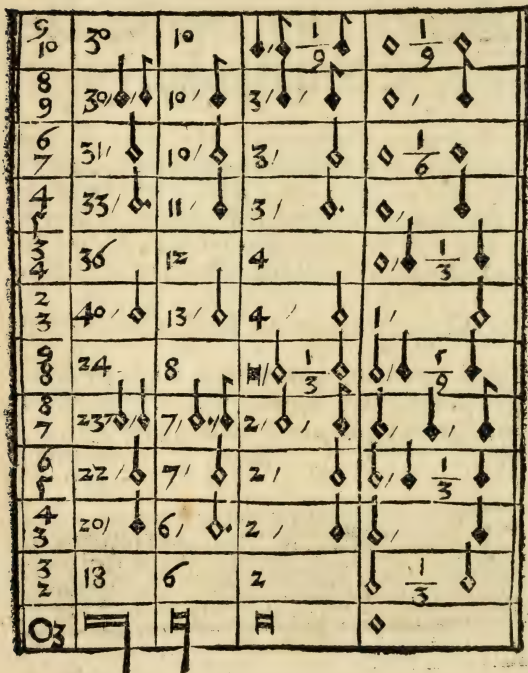 9/10 30 10 1/9 1/9
8/9 30 10 3
6/7 31 10 3 1/6
4/5 33 11 3
3/4 36 12 4 1/3
2/3 40 13 4 1
24 8 1/3 5/9
8/7 23 7 2
6/5 22 7 2 1/3
4/3 20 6 2
3/2 18 6 2 1/3
O3